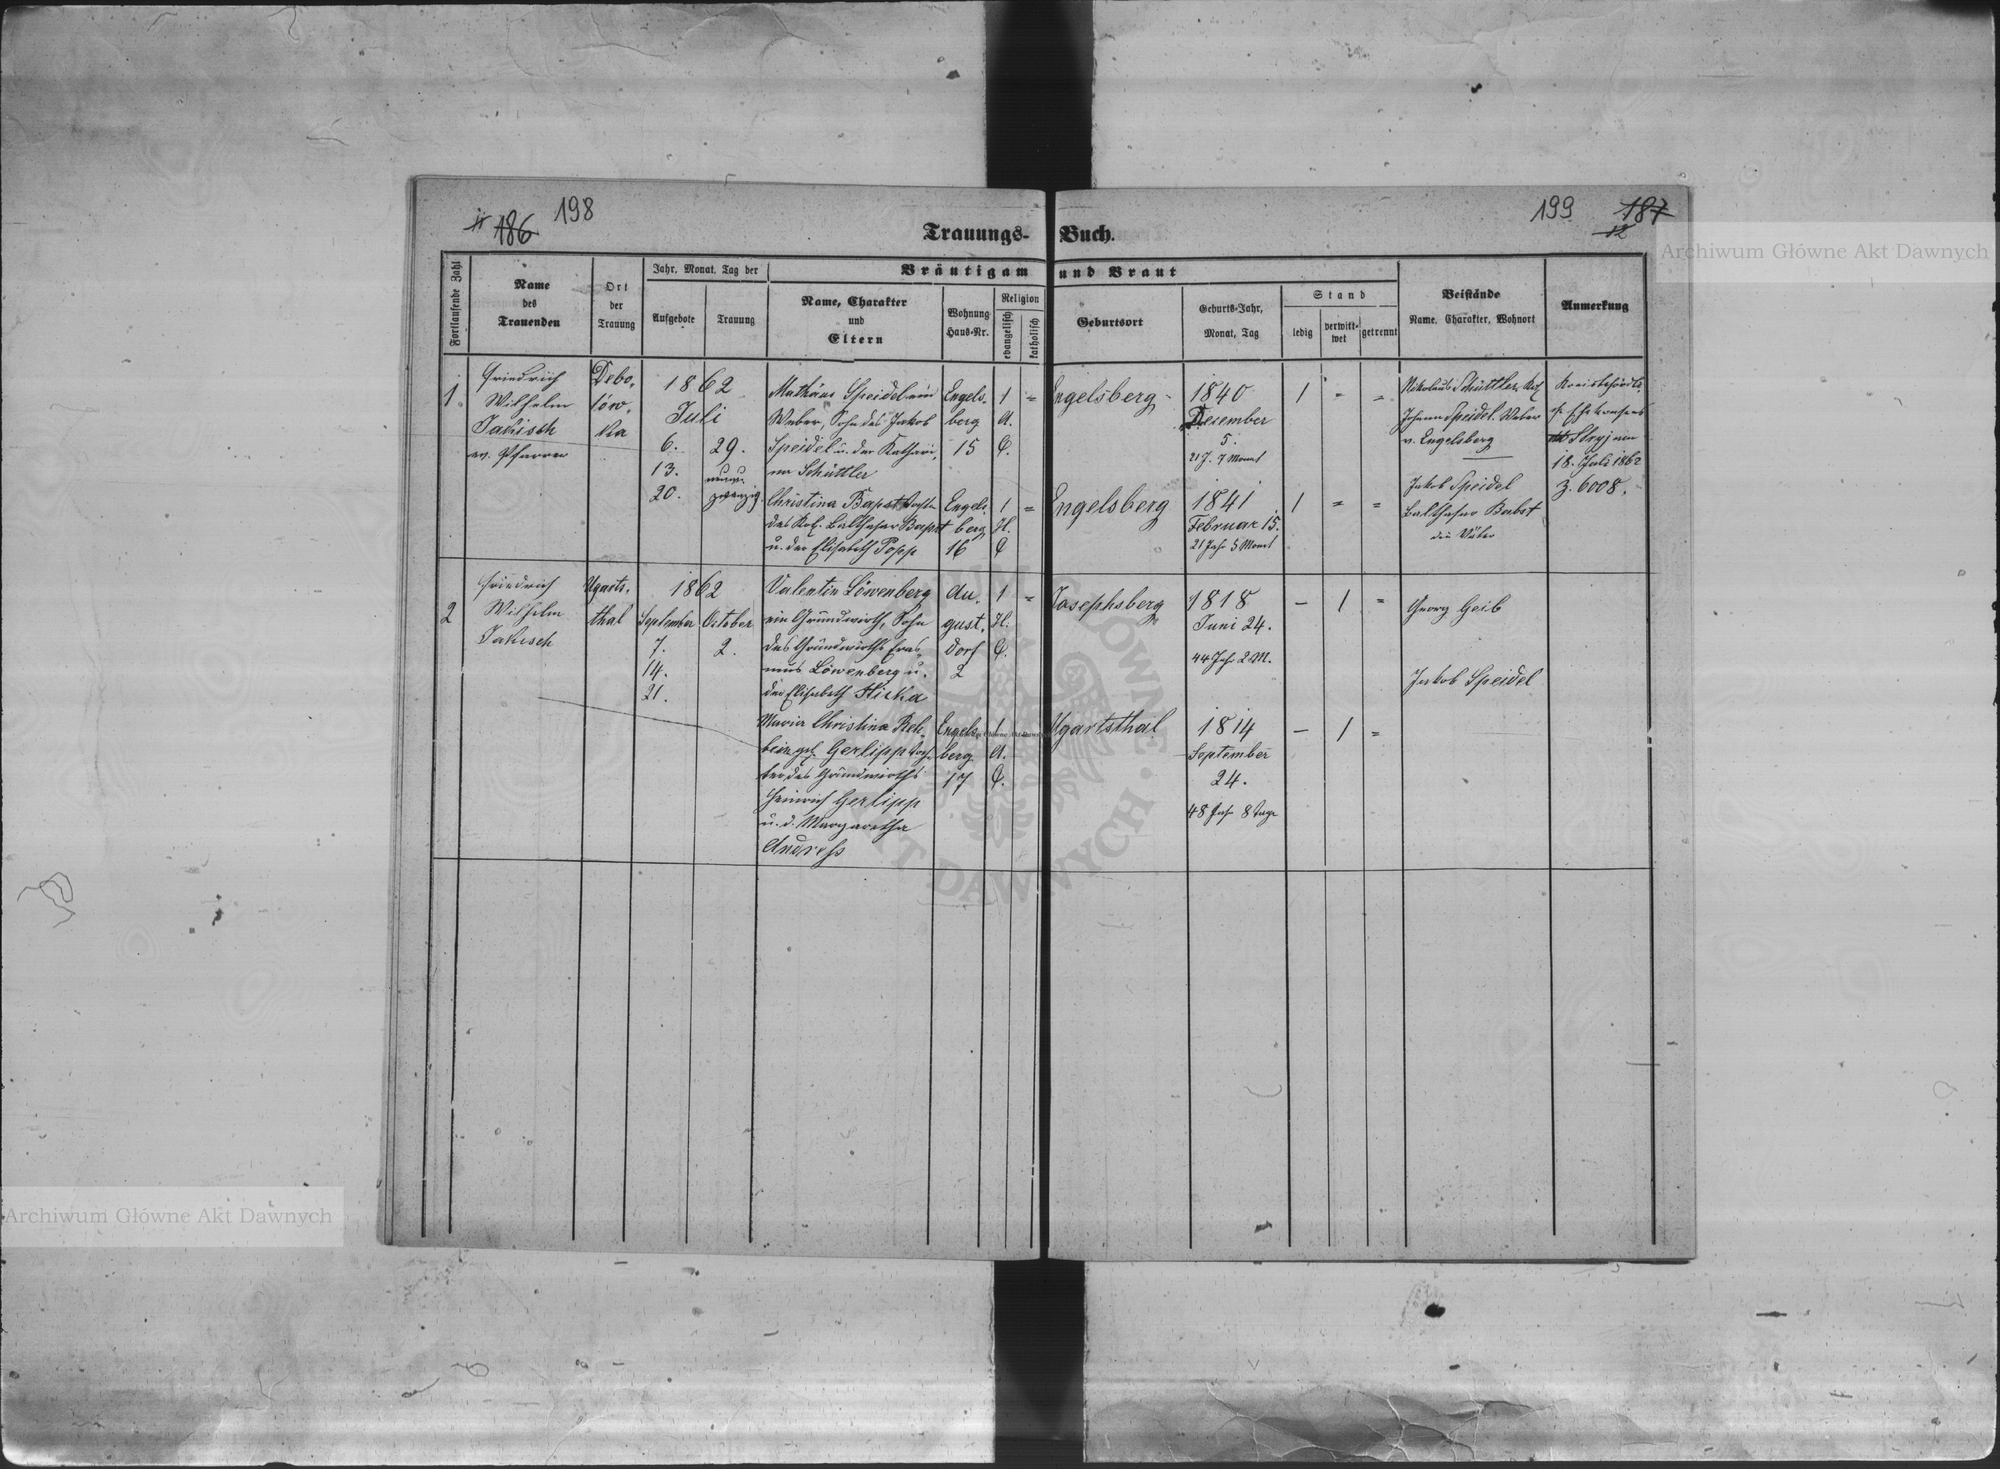 198
11 186
199
187
12
Archiwum Główne Akt Dawnych
Trauungs- Buch.
Fortlaufende Zahl
Name
des
Trauenden
Ort
der
Trauung
Jahr, Monat, Tag der
Aufgebote
Trauung
Bräutigam und Braut
Name, Charakter
und
Eltern
Wohnung
Haus-Nr.
Religion
evangelisch
katholisch
Geburtsort
Geburts-Jahr,
Monat, Tag
Stand
ledig
verwitt-
wet
getrennt
Beistände
Name, Charakter, Wohnort
Anmerkung
1.
Friedrich
Wilhelm
Jakisch
ev. Pfarrer
Debo,
lów,
ka
1862
Juli
6.
13.
20.
29.
neun u.
zwanzig.
Mathäus Speidel ein
Weber, Sohn des Jakob
Speidel u. der Kathari,
na Schüttler
Engels,
berg
15
1
A.
C.
Engelsberg
1840
Dezember
5.
21 J. 7 Monat
1 = =
Nikolaus Schüttler
Johann Speidel, Weber
v. Engelsberg
Stryj
18. Juli 1862
Z. 6008.
Christina Bapst Tocht
des Kol. Balthasar Bapst
u. der Elisabeth Popp
Engels,
berg
16
1
H.
C
Engelsberg
1841
Februar 15.
21 Jahr 5 Monat
1 = =
Jakob Speidel
Balthasar Babst
die Väter
2
Friedrich
Wilhelm
Jakisch
Ugarts,
thal
1862
September
7.
14.
21.
October
2.
Valentin Löwenberg
ein Grundwirth, Sohn
des Grundwirths Eras,
mus Löwenberg u.
der Elisabeth Hicka
Au,
gust,
dorf
2
1
H.
C.
Josephsberg
1818
Juni 24.
44 Jahr 2 M.
- 1 =
Georg Geib
Jakob Speidel
Maria Christina
geb. Gerlipp Toch,
ter des Grundwirths
Heinrich Gerlipp
u. d. Margaretha
Andress
Engels,
berg
17
1
A.
C.
Ugartsthal
1814
September
24.
48 Jahr 8 Tage
- 1 =
Archiwum Główne Akt Dawnych